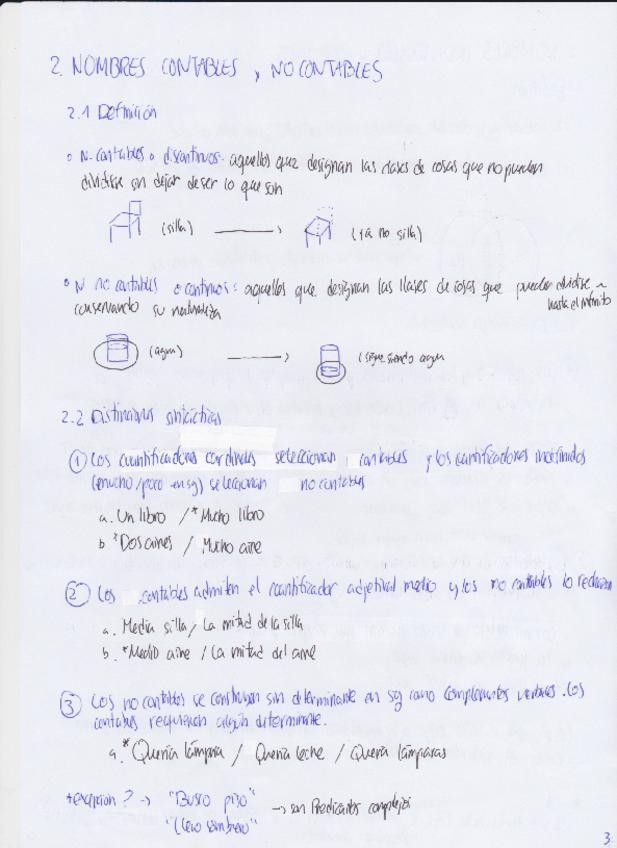 2. NOMBRES CONTABLES y NO CONTABLES
2.1 Definición
• N. contables o discontinuos: aquellos que designan las clases de cosas que no pueden
dividirse sin dejar de ser lo que son
(silla) → (ya no silla)
• N no contables o continuos: aquellos que designan las clases de cosas que pueden dividirse
hasta el infinito
conservando su naturaleza
(agua) → (sigue siendo agua
2.2 Distinciones sintácticas
① Los cuantificadores cardinales seleccionan contables y los cuantificadores indefinidos
(mucho/poco en sg) seleccionan no contables
a. Un libro / *Mucho libro
b. *Dos aires / Mucho aire
② Los contables admiten el cuantificador adjetival medio y los no contables lo rechazan
a. Media silla / La mitad de la silla
b. *Medio aire / La mitad del aire
③ Los no contables se construyen sin determinante en sg como complementos verbales. Los
contables requieren algún determinante.
a. *Quería lámpara / Quería leche / Quería lámparas
*excepción? → "Busco piso" → son Predicados complejos
"Llevo sombrero"
3